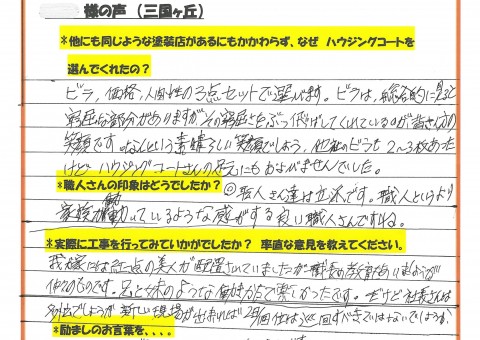 様の声 (三国ヶ丘)
*他にも同じような塗装店があるにもかかわらず、なぜ ハウジングコートを
選んでくれたの?
ビラ,価格,人間性の3点セットで選びます。ビラは,総合的に見ると
窮屈な部分がありますがその窮屈さをぶっ飛ばしてくれているのが皆さんの
笑顔です。なんという素晴らしい笑顔でしょう。他社のビラも2〜3枚あった
けどハウジングコートさんの足元にもおよびませんでした。
*職人さんの印象はどうでしたか?
◎職人さん達は立派です。職人というより
家族が働いているような感がする良い職人さんですね。
*実際に工事を行ってみていかがでしたか? 率直な意見を教えてください。
我家には紅一点の美人が配置されていましたが職長の教育がいましょうが
仲々のものです。兄と妹のような働き方で楽しかったです。だけど社長さんは
多忙でしょうが新しい現場が出来れば2回位は巡回すべきではないでしょうか
*励ましのお言葉を、、、、